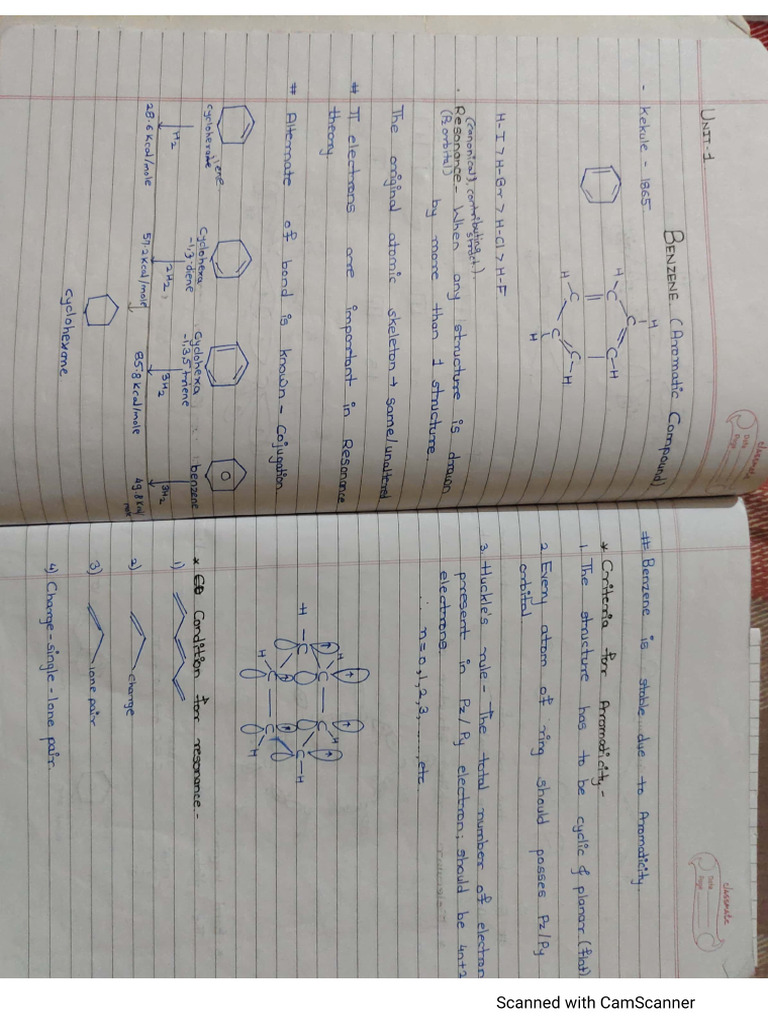 classmate
Date
Page
UNIT-1
BENZENE (Aromatic Compound)
- Kekule - 1865.
H
H
C
C
C-H
H
C
C
C-H
H
H-I > H-Br > H-Cl > H-F
(canonical), contributing struct.)
. Resonance - When any structure is drawn
(P.orbital) by more than 1 structure.
The original atomic skeleton → same/unaltered
# π electrons are important in Resonance
theory
# Alternate of bond is known - Cojugation
cyclohexene
Cyclohexa
-1,3-diene
Cyclohexa
-1,3,5 triene
benzene
H2
2H2
3H2
3H2
28.6 Kcal/mole
57.2 Kcal/mole
85.8 Kcal/mole
49.8 Kcal/
cyclohexane
classmate
Date
Page
# Benzene is stable due to Aromaticity.
* Criteria for Aromaticity -
1. The structure has to be cyclic & planar (flat)
2. Every atom of ring should posses Pz/Py
orbital
3. Huckle's rule - The total number of electron
present in Pz/Py electron; should be 4n+2
electrons.
∴ n = 0, 1, 2, 3, ......, etc.
H
H
-H
C
C
C
C
C
C-H
H
H
* Condition for resonance.-
1)
2)
charge
3)
lone pair
4) Charge - single - lone pair.
Scanned with CamScanner